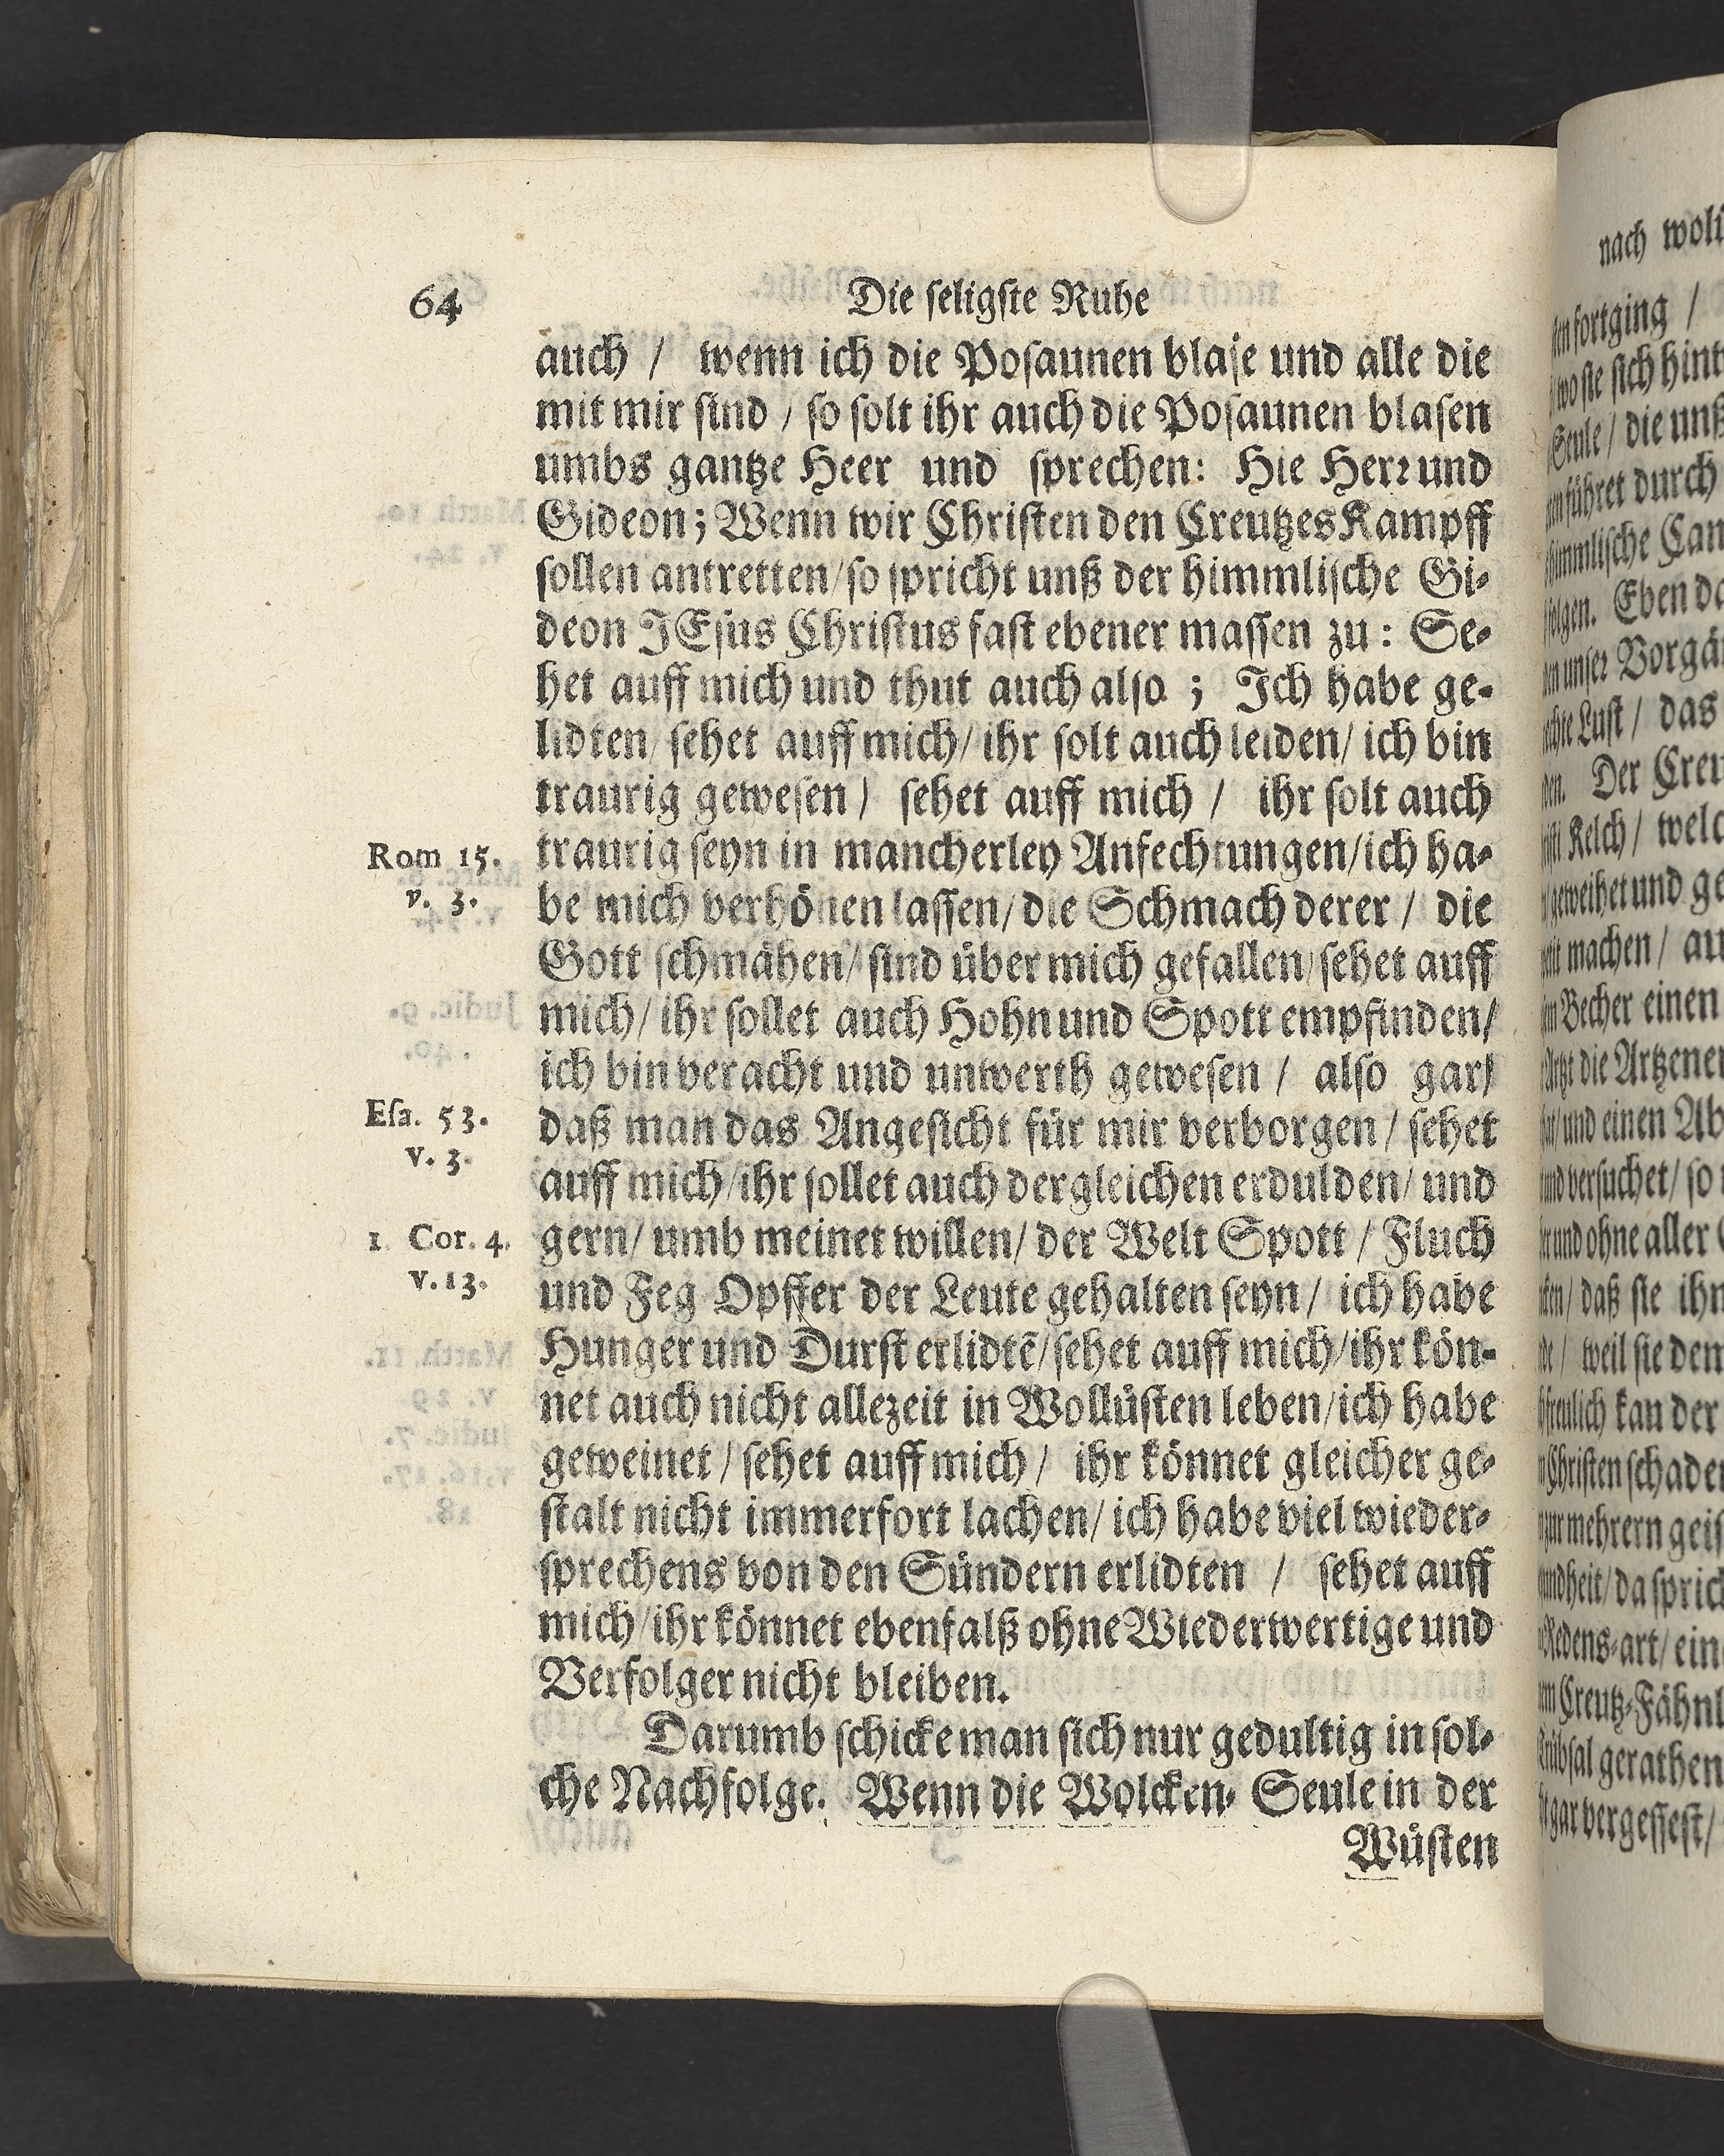 64
Die ſeligſte Ruhe
auch / wenn ich die Poſaunen blaſe und alle die
mit mir ſind / ſo ſolt ihr auch die Poſaunen blaſen
umbs gantze Heer und ſprechen: Hie Herꝛ und
Gideon; Wenn wir Chriſten den Creutzes Kampff
ſollen antretten/ ſo ſpricht unß der himmliſche Gi-
deon JEſus Chriſtus faſt ebener maſſen zu: Se-
het auff mich und thut auch alſo ; Ich habe ge-
lidten/ ſehet auff mich/ ihr ſolt auch leiden/ ich bin
traurig geweſen / ſehet auff mich / ihr ſolt auch
Rom 15.
v. 3.
traurig ſeyn in mancherley Anfechtungen/ ich ha-
be mich verhönen laſſen/ die Schmach derer / die
Gott ſchmähen/ ſind über mich gefallen/ ſehet auff
mich/ ihr ſollet auch Hohn und Spott empfinden/
ich bin veracht und unwerth geweſen / alſo gar/
Eſa. 53.
v. 3.
daß man das Angeſicht für mir verborgen/ ſehet
auff mich/ ihr ſollet auch dergleichen erdulden/ und
1 Cor. 4.
v. 13.
gern/ umb meinet willen/ der Welt Spott / Fluch
und Feg Opffer der Leute gehalten ſeyn/ ich habe
Hunger und Durſt erlidtē/ ſehet auff mich/ ihr kön-
net auch nicht allezeit in Wollüſten leben/ ich habe
geweinet / ſehet auff mich / ihr könnet gleicher ge-
ſtalt nicht immerfort lachen/ ich habe viel wieder-
ſprechens von den Sündern erlidten / ſehet auff
mich/ ihr könnet ebenfalß ohne Wiederwertige und
Verfolger nicht bleiben.
Darumb ſchicke man ſich nur gedultig in ſol-
che Nachfolge. Wenn die Wolcken- Seule in der
Wüſten
nach
fortging /
wo ſie ſich
Seule / die unß
führet durch
folgen. Eben
Vorgän
Luſt / das
Der Creu
Kelch/ welc
geweihet und ge
machen/ au
Becher einen
die Artzene
und einen Ab
und verſuchet/ ſo
und ohne aller
daß ſie ihn
weil ſie dem
kan der
Chriſten ſchade
mehrern
da ſprich
Redens-art/ ein
Creutz-Fähnl
gerathen
gar vergeſſeſt/